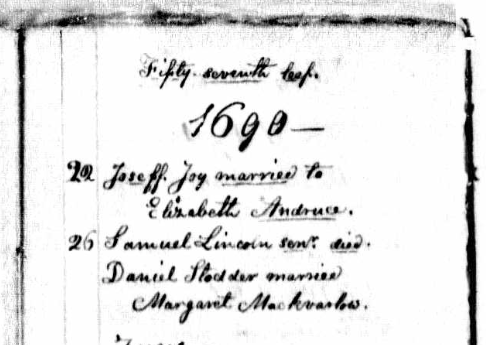 Fifty seventh leaf.
1690 —
22 Joseff. Joy married to
Elizabeth Andruce.
26 Samuel Lincoln senr. died.
Daniel Stodder married
Margaret Mackvarlow.